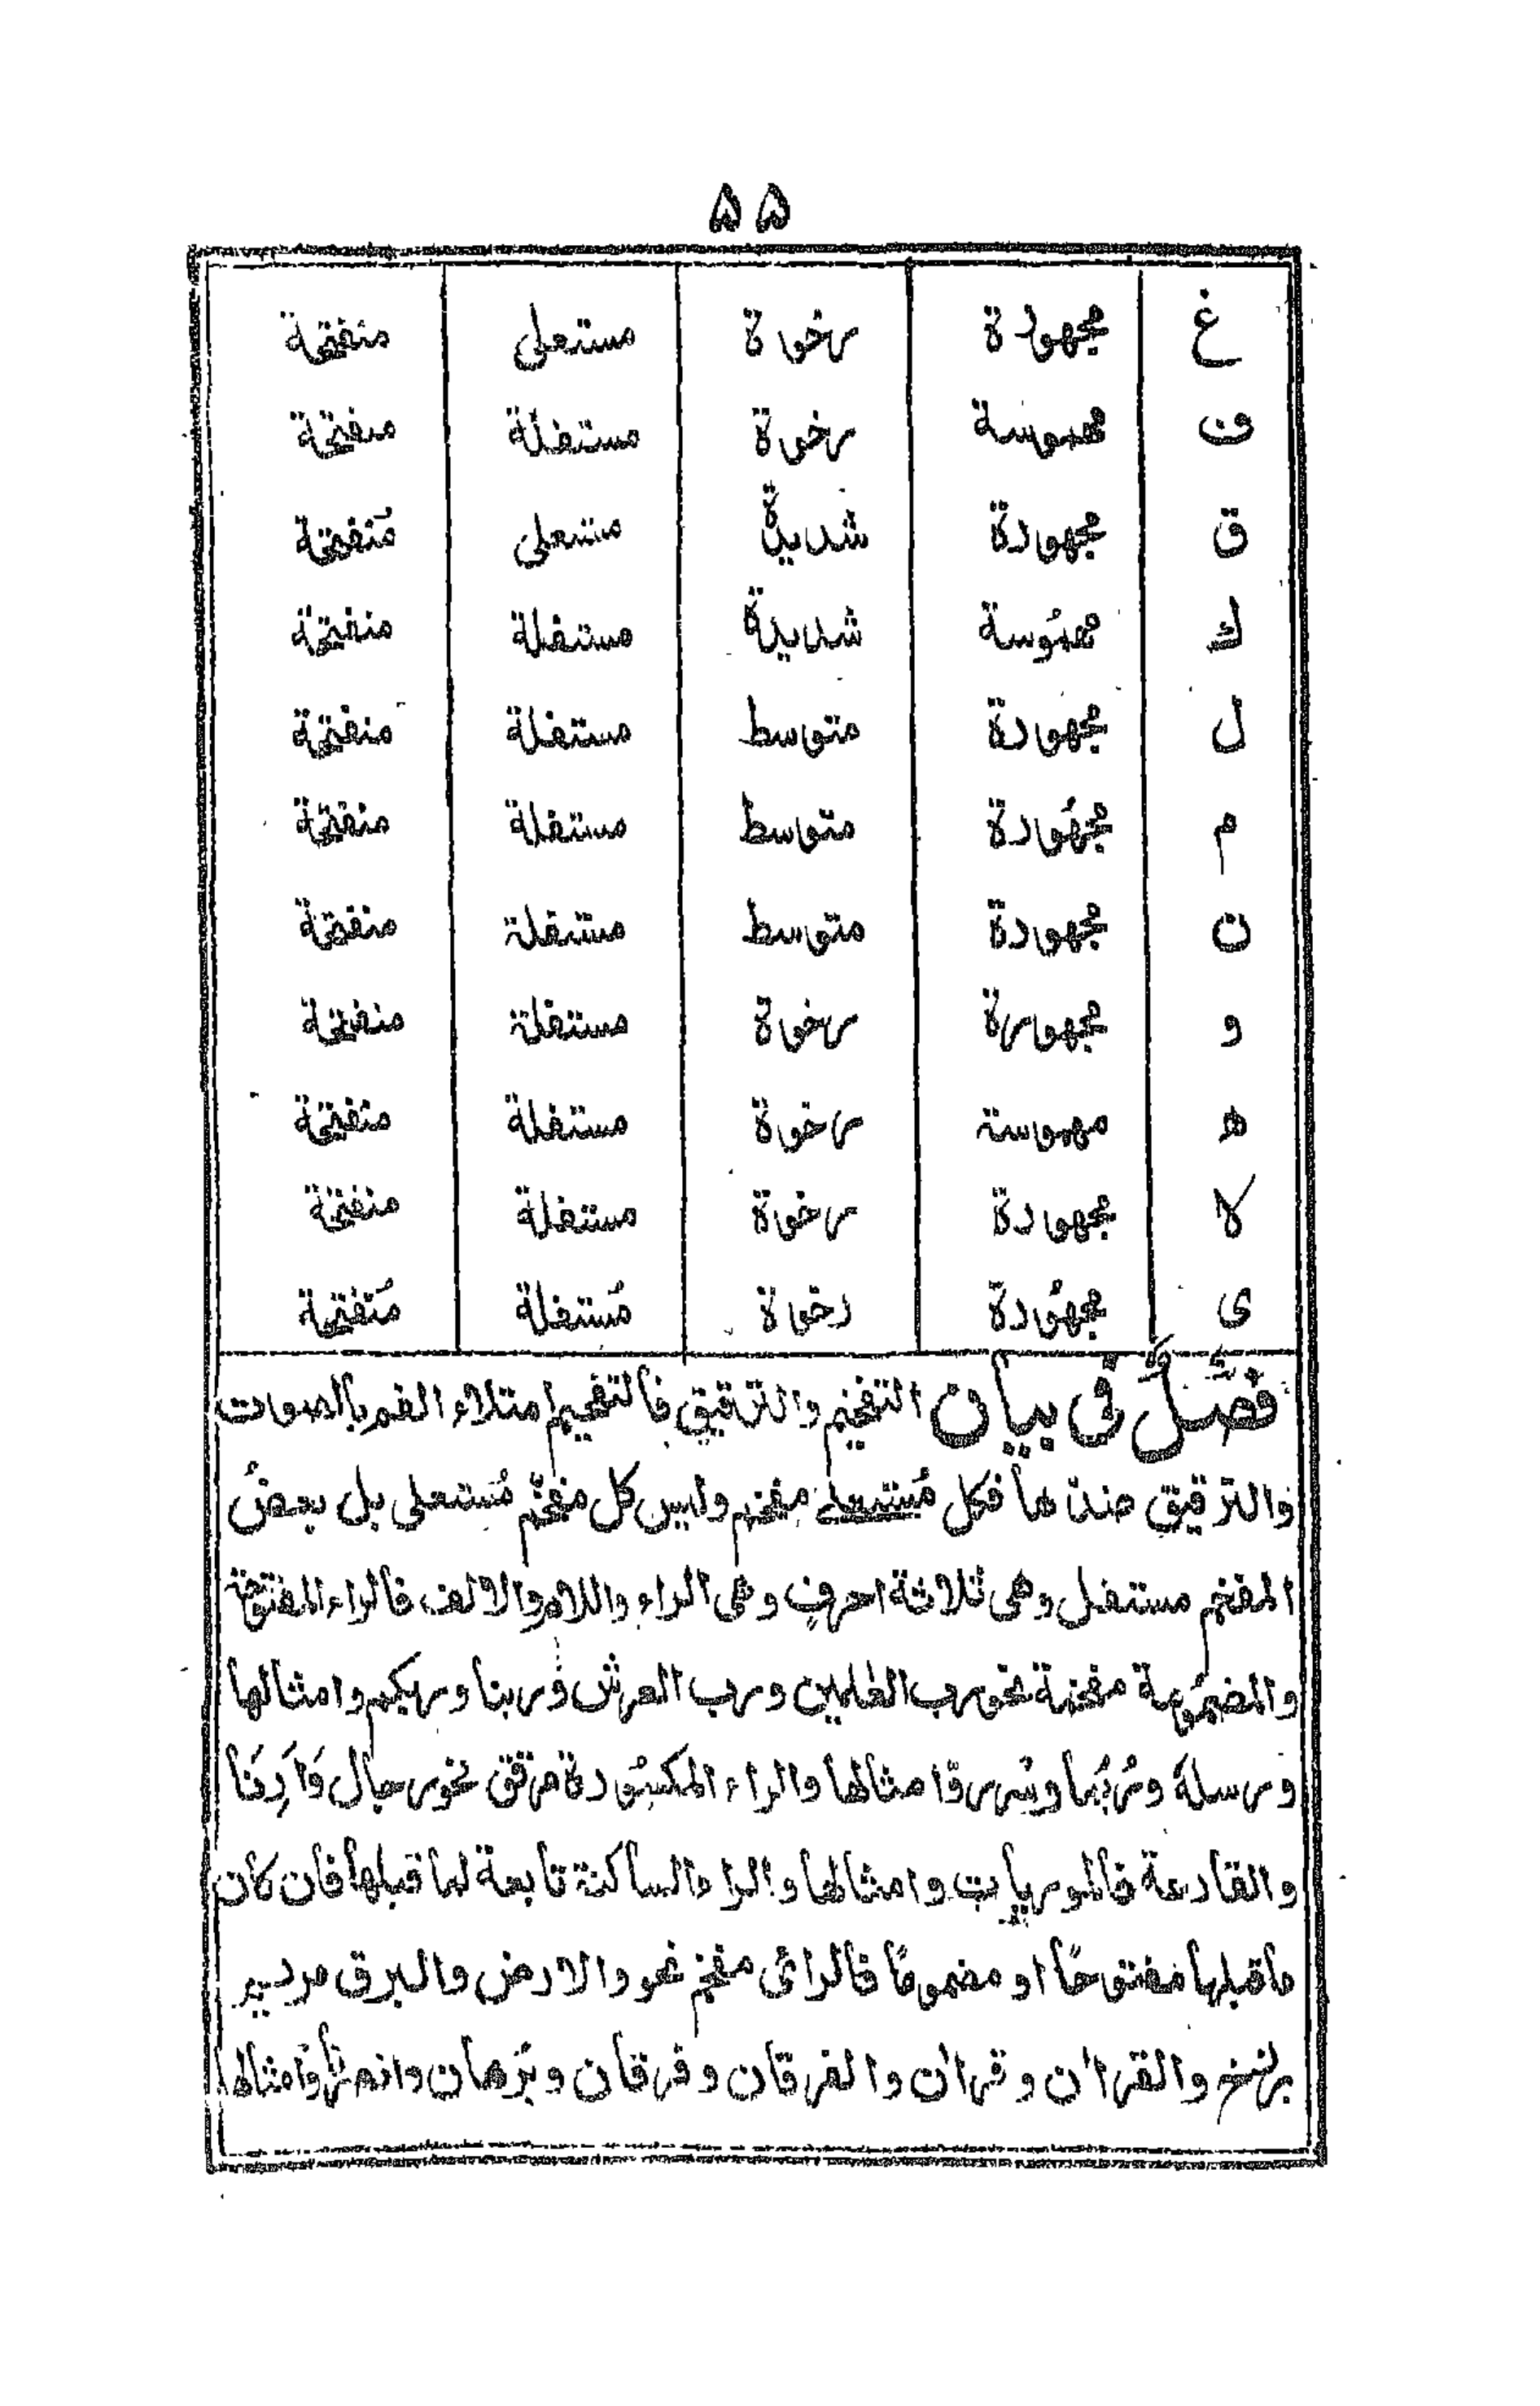 ۵۵
غ مجهورة رخوة مستعلى منفتحة
ف مهموسة رخوة مستفلة منفتحة
ق مجهورة شديدة مستعلى مُنفتحة
ك مهمُوسة شديدة مستفلة منفتحة
ل مجهورة متوسط مستفلة منفتحة
م مجهُورة متوسط مستفلة منفتحة
ن مجهورة متوسط مستفلة منفتحة
و مجهورة رخوة مستفلة منفتحة
ه مهموسة رخوة مستفلة منفتحة
لا مجهورة رخوة مستفلة منفتحة
ى مجهُورة رخوة مُستفلة مُنفتحة
فصلٌ فى بيان التفخيم والترقيق فالتفخيم امتلاء الفم بالصوات
والترقيق ضدها فكل مُستعلے مفخم وليس كل مفخّم مُستعلى بل بعضُ
المفخم مستفل وهى ثلاثة احرفٍ وهى الراء واللام والالف فالراء المفتوحة
والمضمُومة مفخمة نحو رب العٰلمين ورب العرش وربنا وربكم وامثالها
ورسلهٗ ورُبَما وسُرر وامثالها والراء المكسُورة مرقق نحو رجال وَاَرِنَا
والقارعة فالموريات وامثالها والراء الساكنة تابعة لما قبلها فان كان
ما قبلها مفتوحًا او مضمومًا فالرائى مفخم نحو والارض والبرق مريم
برزخ والقراٰن وقراٰن والفرقان وفرقان وبُرهان وامثالها